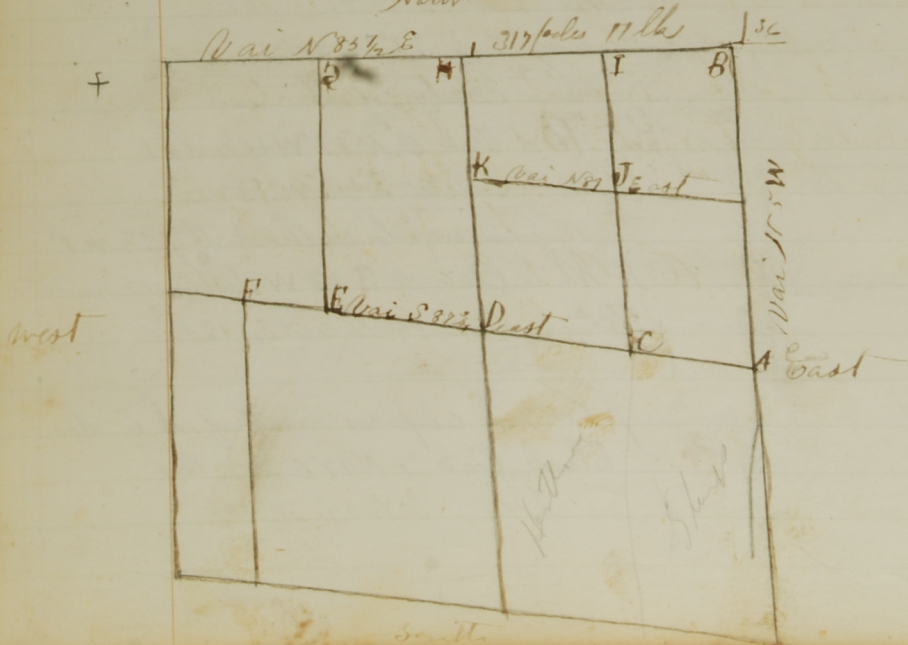 North
Vai N 85½ E 317 poles 11 lks 36
H I B
K Vai N 87 J East
Vai N 5 W
F E Vai S 87½ D east
west
C
A East
South